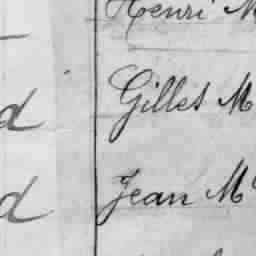 Henri M
d Gilles M
d Jean Mc